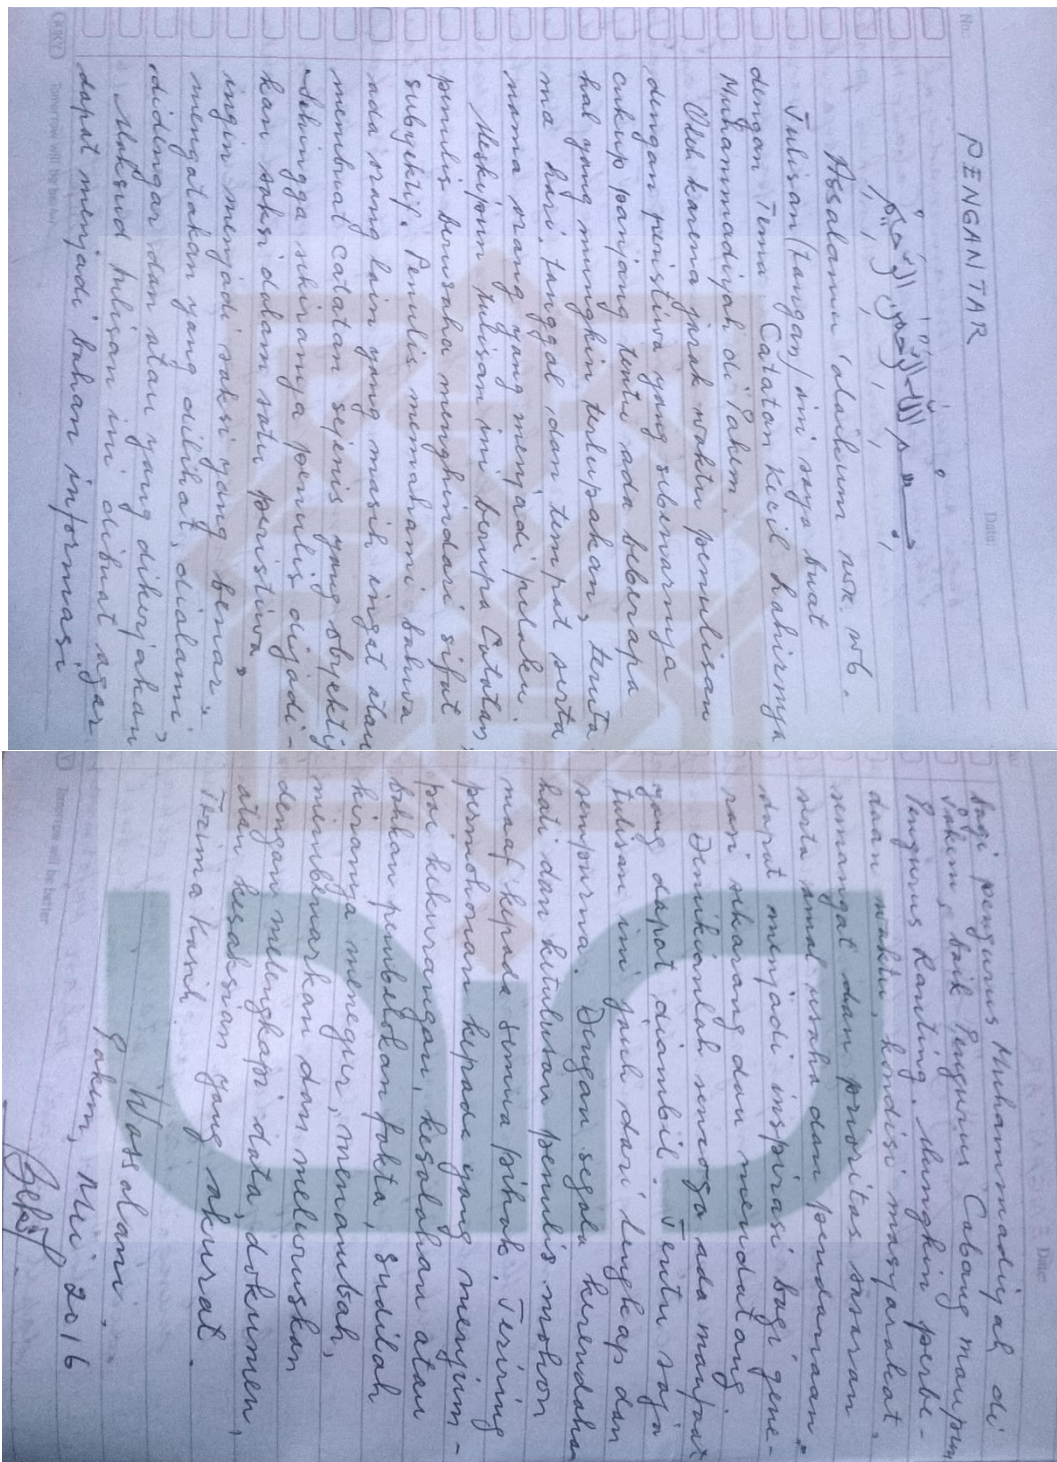 No:
Date:
PENGANTAR
بسم الله الرحمن الرحيم
Assalamu 'alaikum wr. wb.
Tulisan (tangan) ini saya buat
dengan Tema Catatan Kecil Lahirnya
Muhammadiyah di Pakem.
Oleh karena jarak waktu penulisan
dengan peristiwa yang sebenarnya
cukup panjang tentu ada beberapa
hal yang mungkin terlupakan, teruta
ma hari, tanggal, dan tempat serta
nama orang yang menjadi pelaku.
Meskipun tulisan ini berupa Catatan,
penulis berusaha menghindari sifat
subyektif. Penulis memahami bahwa
ada orang lain yang masih ingat atau
membuat catatan sejenis yang obyektif
sehingga sekiranya penulis dijadi-
kan saksi dalam satu peristiwa,
ingin menjadi saksi yang benar,
mengatakan yang dilihat, dialami,
didengar dan atau yang dikerjakan,
Maksud tulisan ini dibuat agar
dapat menjadi bahan informasi
Tomorrow will be better
Date:
bagi pengurus Muhammadiyah di
Pakem, baik Pengurus Cabang maupun
Pengurus Ranting. Mungkin perbe-
daan waktu, kondisi masyarakat,
semangat dan prioritas sasaran
serta amal usaha dan pendanaan
dapat menjadi inspirasi bagi gene-
rasi sekarang dan mendatang.
Demikianlah semoga ada manfaat
yang dapat diambil. Tentu saja
tulisan ini jauh dari lengkap dan
sempurna. Dengan segala kerendahan
hati dan ketulusan penulis mohon
maaf kepada semua pihak. Teriring
permohonan kepada yang menjum-
pai kekurangan, kesalahan atau
bahkan pembelokan fakta, sudilah
kiranya menegur, menambah,
membenarkan dan meluruskan
dengan melengkapi data, dokumen,
atau kesaksian yang akurat.
Terima kasih.
Wassalam,
Pakem, Mei 2016
Tomorrow will be better